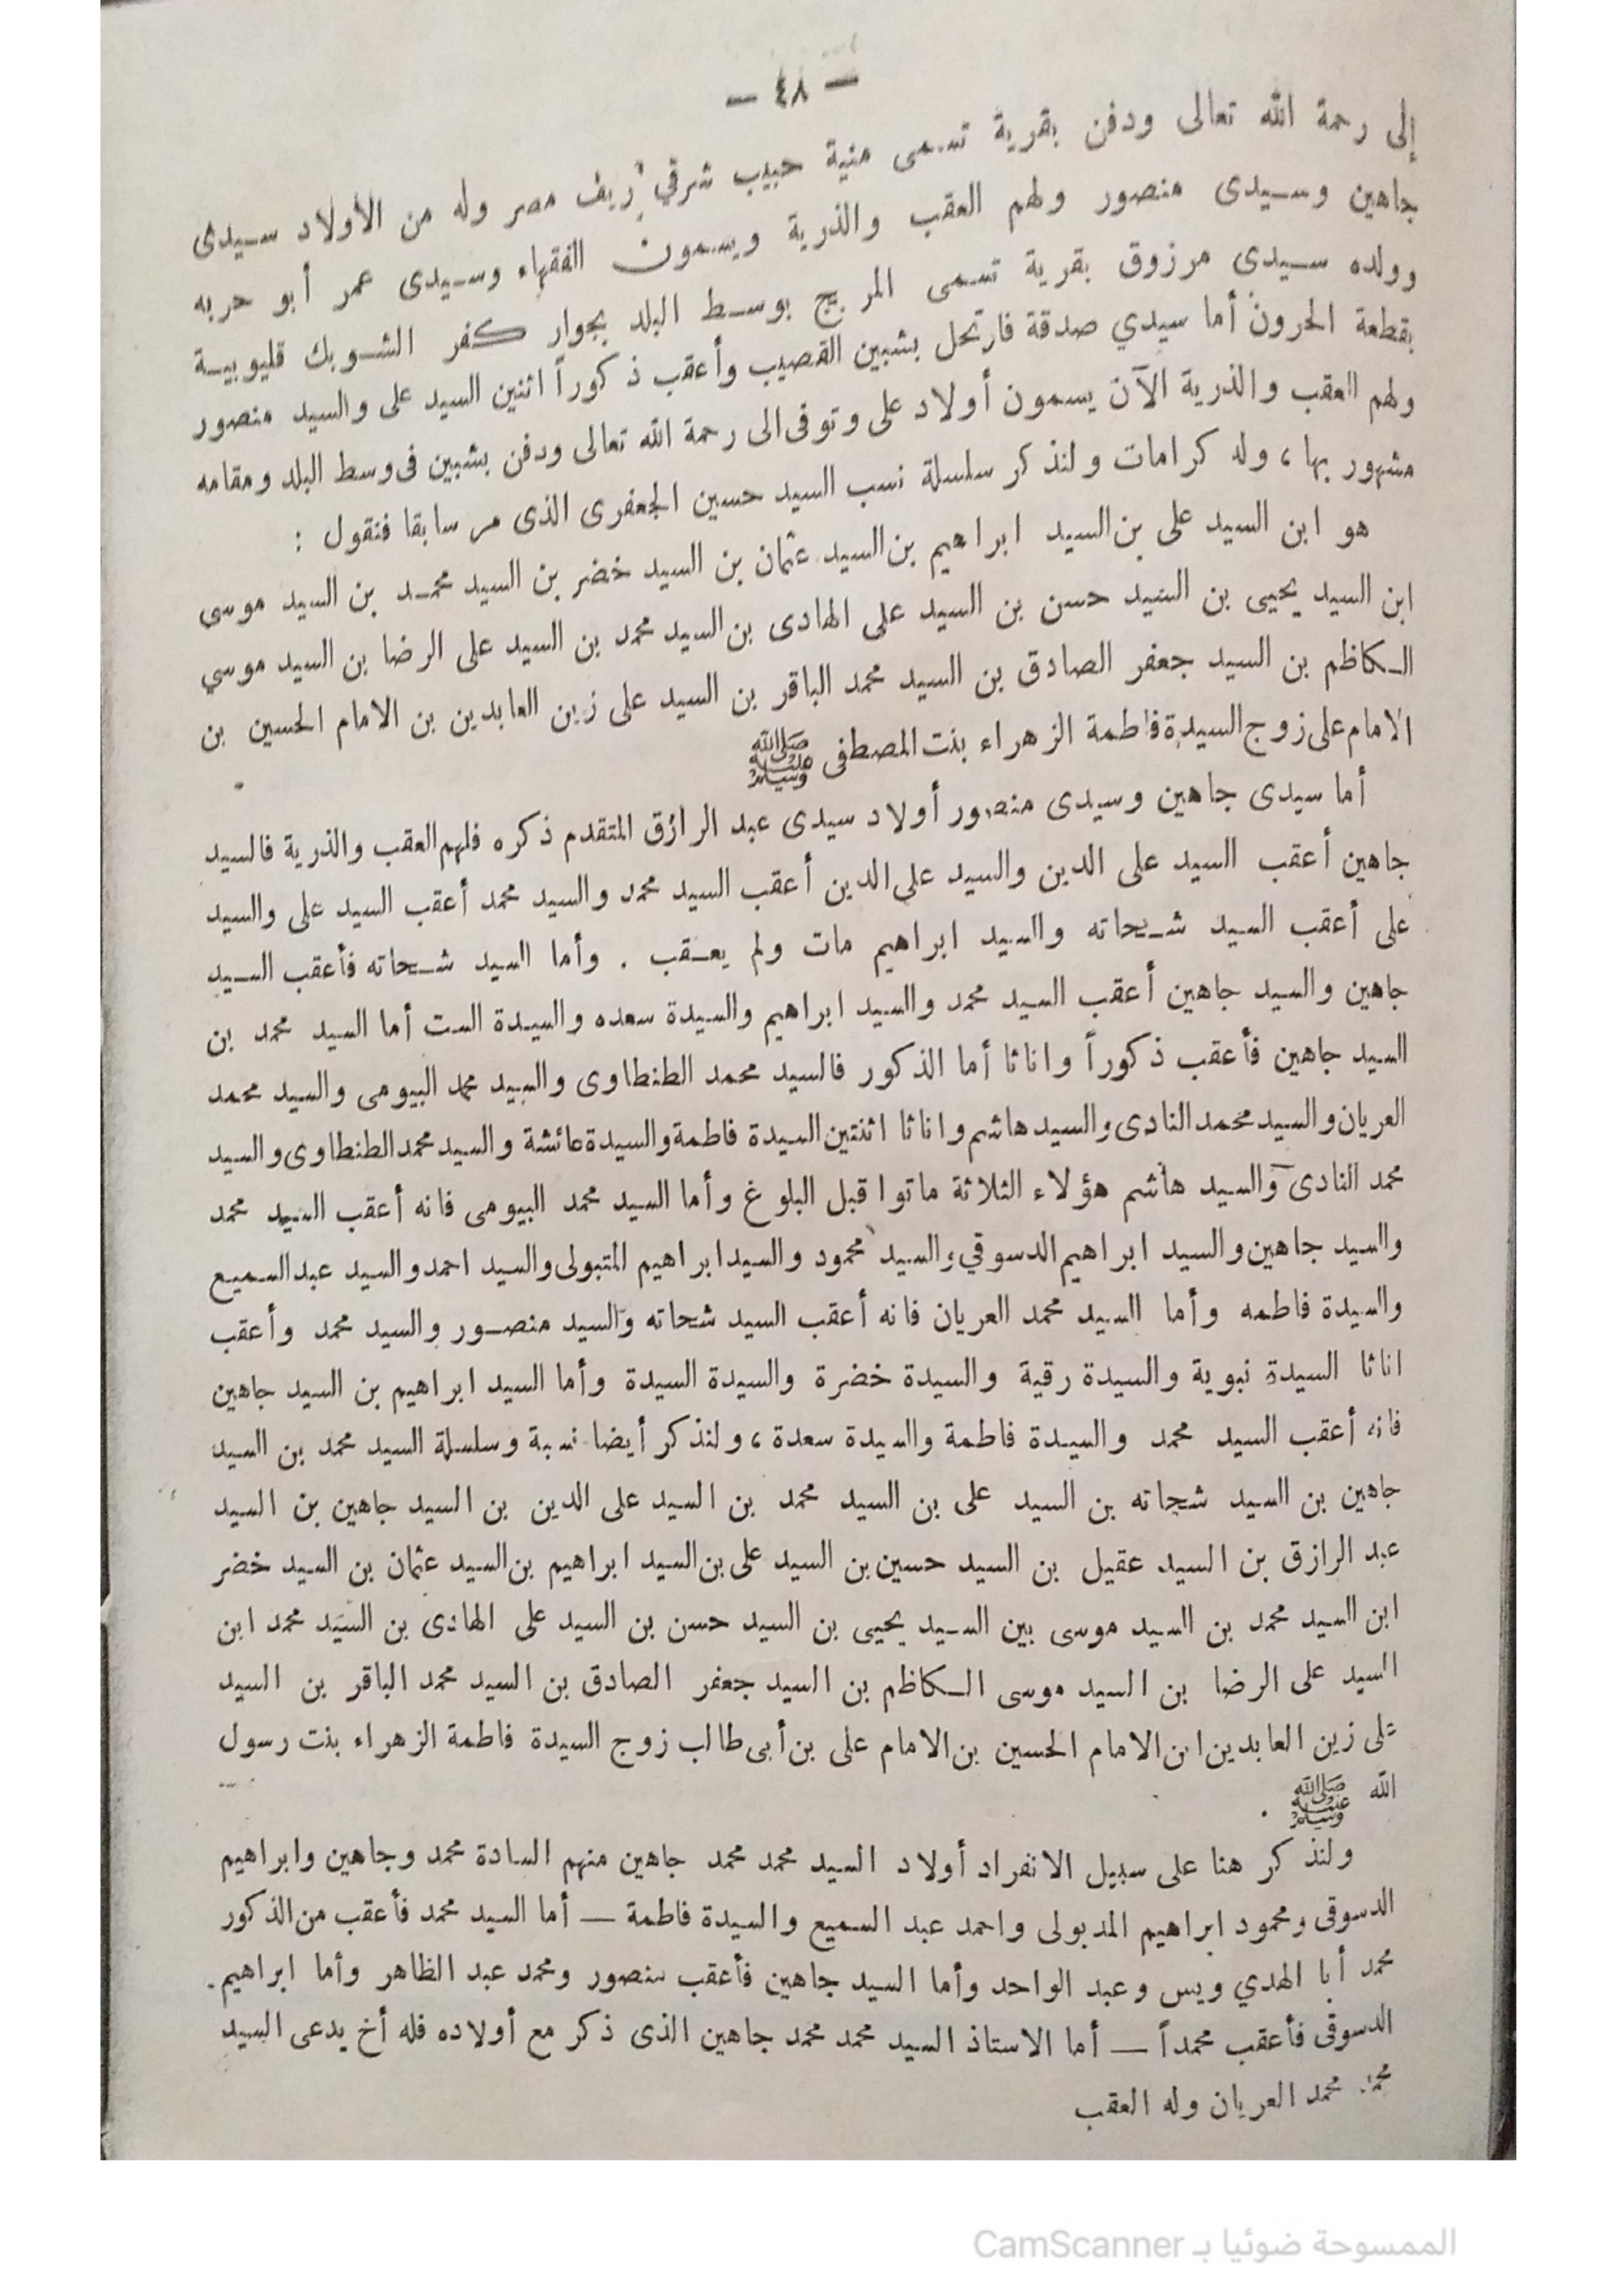 — ٤٨ —
إلى رحمة الله تعالى ودفن بقرية تسمى منية حبيب شرقي ريف مصر وله من الأولاد سيدى
جاهين وسيدى منصور ولهم العقب والذرية ويسمون الفقهاء وسيدى عمر أبو حربه
وولده سيدى مرزوق بقرية تسمى المريج بوسط البلد بجوار كفر الشوبك قليوبية
بقطعة الحرون أما سيدي صدقة فارتحل بشبين القصيب وأعقب ذكوراً اثنين السيد على والسيد منصور
ولهم العقب والذرية الآن يسمون أولاد على وتوفى الى رحمة الله تعالى ودفن بشبين فى وسط البلد ومقامه
مشهور بها ، وله كرامات ولنذكر سلسلة نسب السيد حسين الجعفرى الذى مر سابقا فنقول :
هو ابن السيد على بن السيد ابراهيم بن السيد عثمان بن السيد خضر بن السيد محمد بن السيد موسي
ابن السيد يحيى بن السيد حسن بن السيد على الهادى بن السيد محمد بن السيد على الرضا بن السيد موسي
الكاظم بن السيد جعفر الصادق بن السيد محمد الباقر بن السيد على زين العابدين بن الامام الحسين بن
الامام على زوج السيدة فاطمة الزهراء بنت المصطفى ﷺ
أما سيدى جاهين وسيدى منصور أولاد سيدى عبد الرازق المتقدم ذكره فلهم العقب والذرية فالسيد
جاهين أعقب السيد على الدين والسيد على الدين أعقب السيد محمد والسيد محمد أعقب السيد على والسيد
على أعقب السيد شحاته والسيد ابراهيم مات ولم يعقب . وأما السيد شحاته فأعقب السيد
جاهين والسيد جاهين أعقب السيد محمد والسيد ابراهيم والسيدة سعده والسيدة الست أما السيد محمد بن
السيد جاهين فأعقب ذكوراً واناثا أما الذكور فالسيد محمد الطنطاوى والسيد محمد البيومى والسيد محمد
العريان والسيد محمد النادى والسيد هاشم واناثا اثنتين السيدة فاطمة والسيدة عائشة والسيد محمد الطنطاوى والسيد
محمد النادى والسيد هاشم هؤلاء الثلاثة ماتوا قبل البلوغ وأما السيد محمد البيومى فانه أعقب السيد محمد
والسيد جاهين والسيد ابراهيم الدسوقي والسيد محمود والسيد ابراهيم المتبولى والسيد احمد والسيد عبد السميع
والسيدة فاطمه وأما السيد محمد العريان فانه أعقب السيد شحاته والسيد منصور والسيد محمد وأعقب
اناثا السيدة نبوية والسيدة رقية والسيدة خضرة والسيدة السيدة وأما السيد ابراهيم بن السيد جاهين
فانه أعقب السيد محمد والسيدة فاطمة والسيدة سعدة ، ولنذكر أيضا نسبة وسلسلة السيد محمد بن السيد
جاهين بن السيد شحاته بن السيد على بن السيد محمد بن السيد على الدين بن السيد جاهين بن السيد
عبد الرازق بن السيد عقيل بن السيد حسين بن السيد على بن السيد ابراهيم بن السيد عثمان بن السيد خضر
ابن السيد محمد بن السيد موسى بين السيد يحيى بن السيد حسن بن السيد على الهادى بن السيد محمد ابن
السيد على الرضا بن السيد موسى الكاظم بن السيد جعفر الصادق بن السيد محمد الباقر بن السيد
على زين العابدين ابن الامام الحسين بن الامام على بن أبى طالب زوج السيدة فاطمة الزهراء بنت رسول
الله ﷺ .
ولنذكر هنا على سبيل الانفراد أولاد السيد محمد محمد جاهين منهم السادة محمد وجاهين وابراهيم
الدسوقى ومحمود ابراهيم المدبولى واحمد عبد السميع والسيدة فاطمة — أما السيد محمد فأعقب من الذكور
محمد أبا الهدي ويس وعبد الواحد وأما السيد جاهين فأعقب منصور ومحمد عبد الظاهر وأما ابراهيم
الدسوقى فأعقب محمداً — أما الاستاذ السيد محمد محمد جاهين الذى ذكر مع أولاده فله أخ يدعى السيد
محمد محمد العريان وله العقب
الممسوحة ضوئيا بـ CamScanner